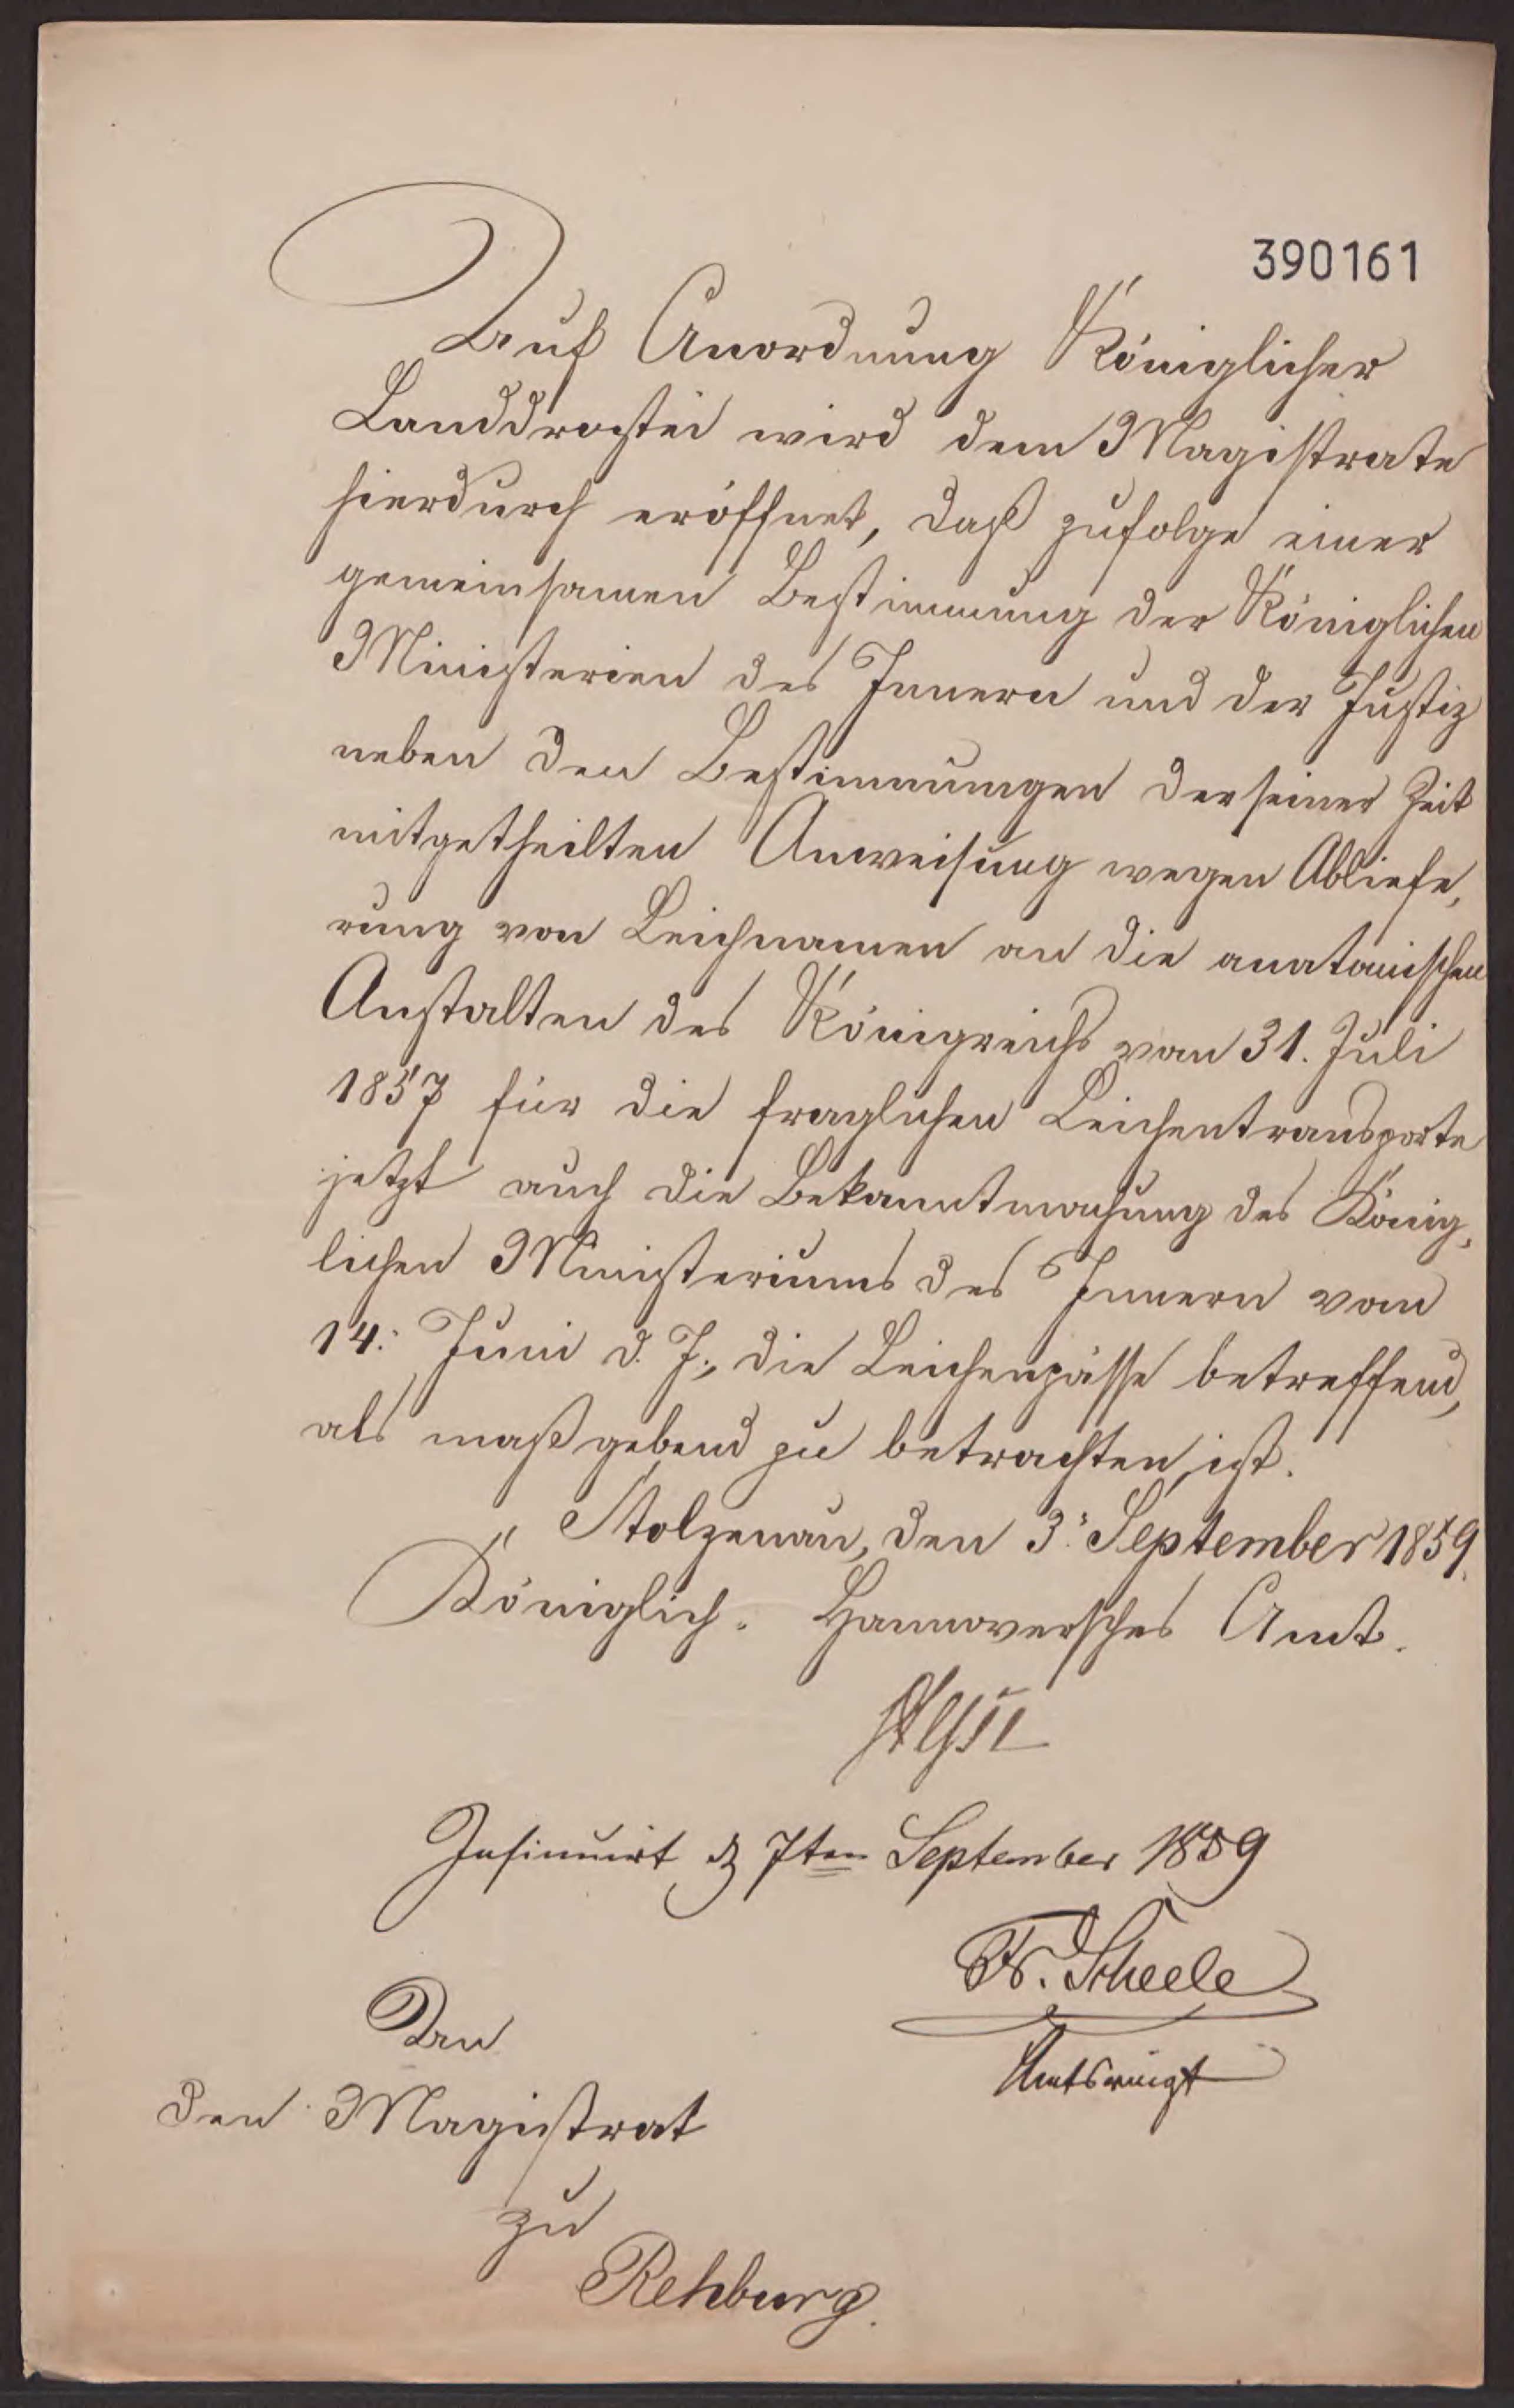 390161
Auf Anordnung Königlicher
Landdrostei wird dem Magistrate
hierdurch eröffnet, daß zufolge einer
gemeinsamen Bestimmung der Königlichen
Ministerien des Innern und der Justiz
neben den Bestimmungen der seiner Zeit
mitgetheilten Anweisung wegen Abliefe,
rung von Leichnamen an die anatomischen
Anstalten des Königreichs vom 31. Juli
1857 für die fraglichen Leichentransporte
jetzt auch die Bekanntmachung des König,
lichen Ministeriums des Innern vom
14. Juni d. J., die Leichenpässe betreffend,
als maßgebend zu betrachten ist.
Stolzenau, den 3. September 1859.
Königlich Hannoversches Amt.
Insinuirt d 7ten September 1859
Fr. Scheele
Amtsvoigt
An
den Magistrat
zu
Rehburg.